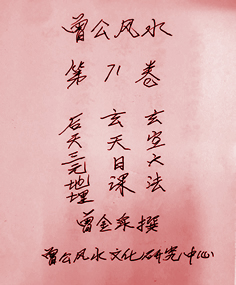 曾公风水
第71卷
玄空大法
玄天日课
后天三元地理
曾金 撰
曾公风水文化研究中心